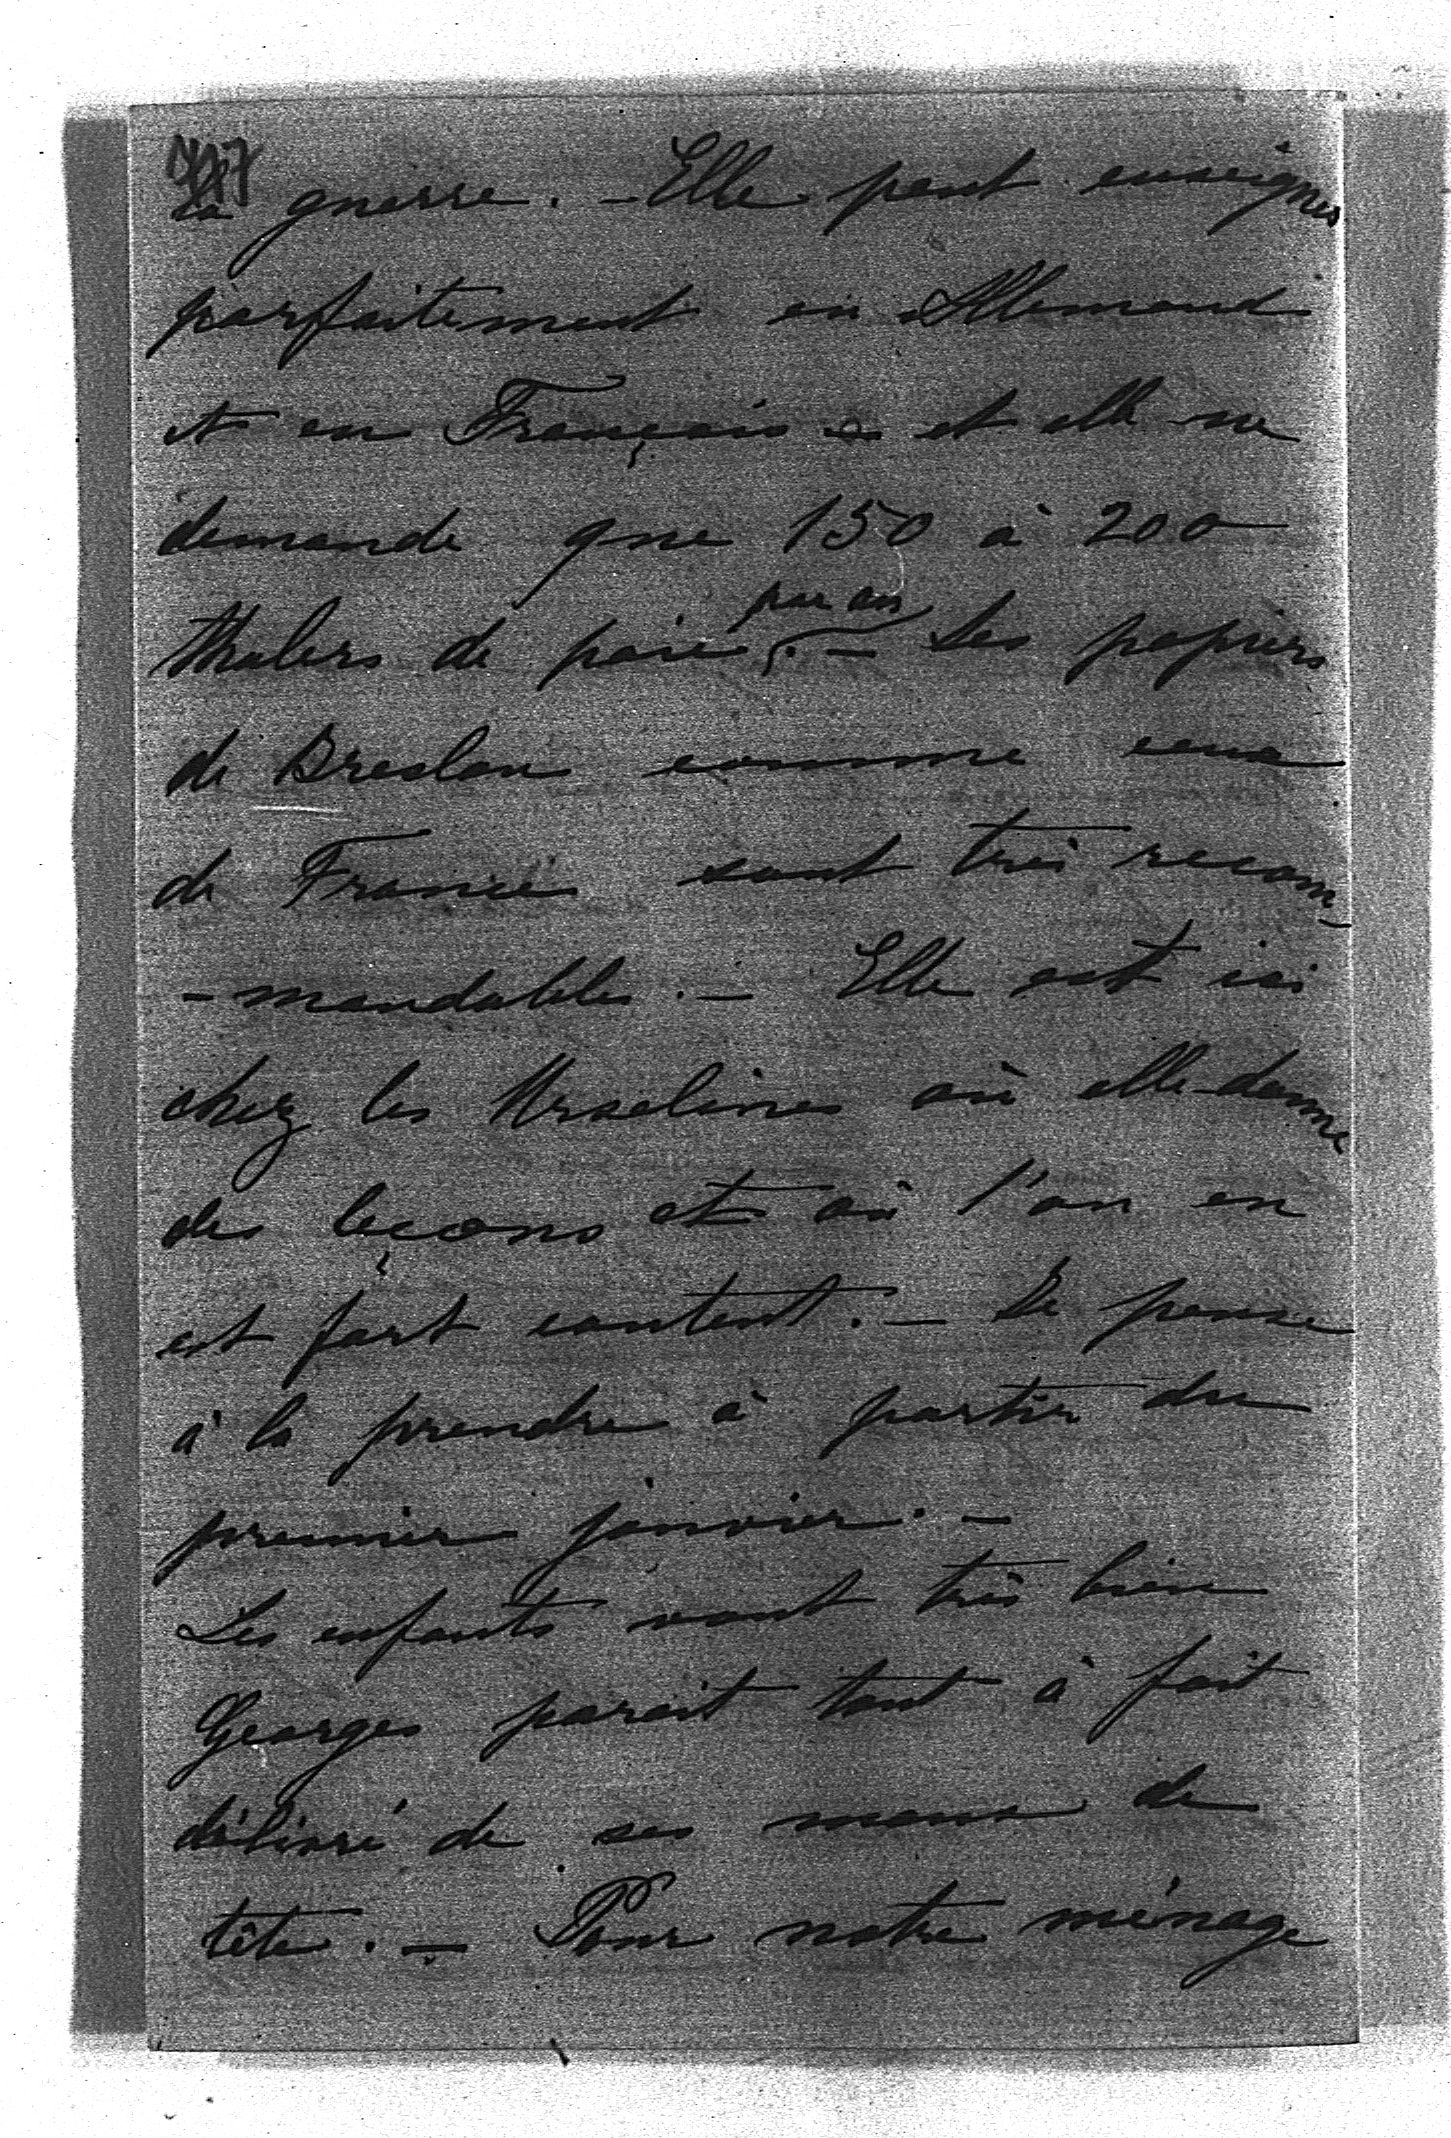 la guerre. - Elle peut enseigner
parfaitement en Allemand
et en Français - et elle ne
demande que 150 à 200
thalers de paie par an. - Les papiers
de Breslau comme ceux
de France sont très recom-
-mandables. - Elle est ici
chez les Urselines où elle donne
des leçons et où l'on en
est fort content. - Je pense
à la prendre à partir du
premier janvier. -
Les enfants vont très bien
Georges parait tout à fait
délivré de ses maux de
tête. - Pour notre ménage